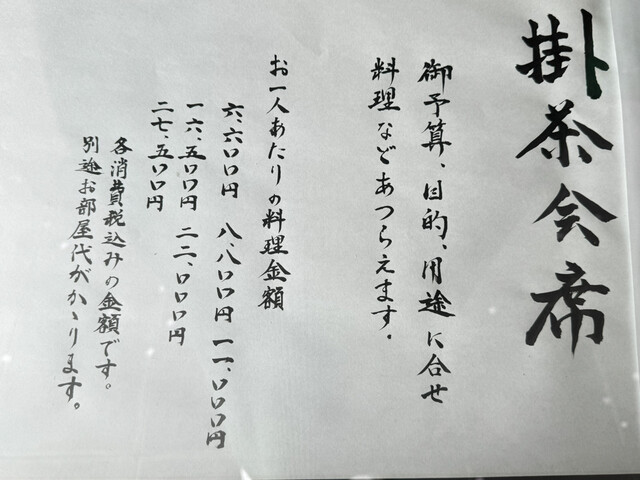 掛茶会席
御予算、目的、用途に合せ
料理などあつらえます。
お一人あたりの料理金額
六.六〇〇円 八.八〇〇円 一一.〇〇〇円
一六.五〇〇円 二二.〇〇〇円
二七.五〇〇円
各消費税込みの金額です。
別途お部屋代がかゝります。